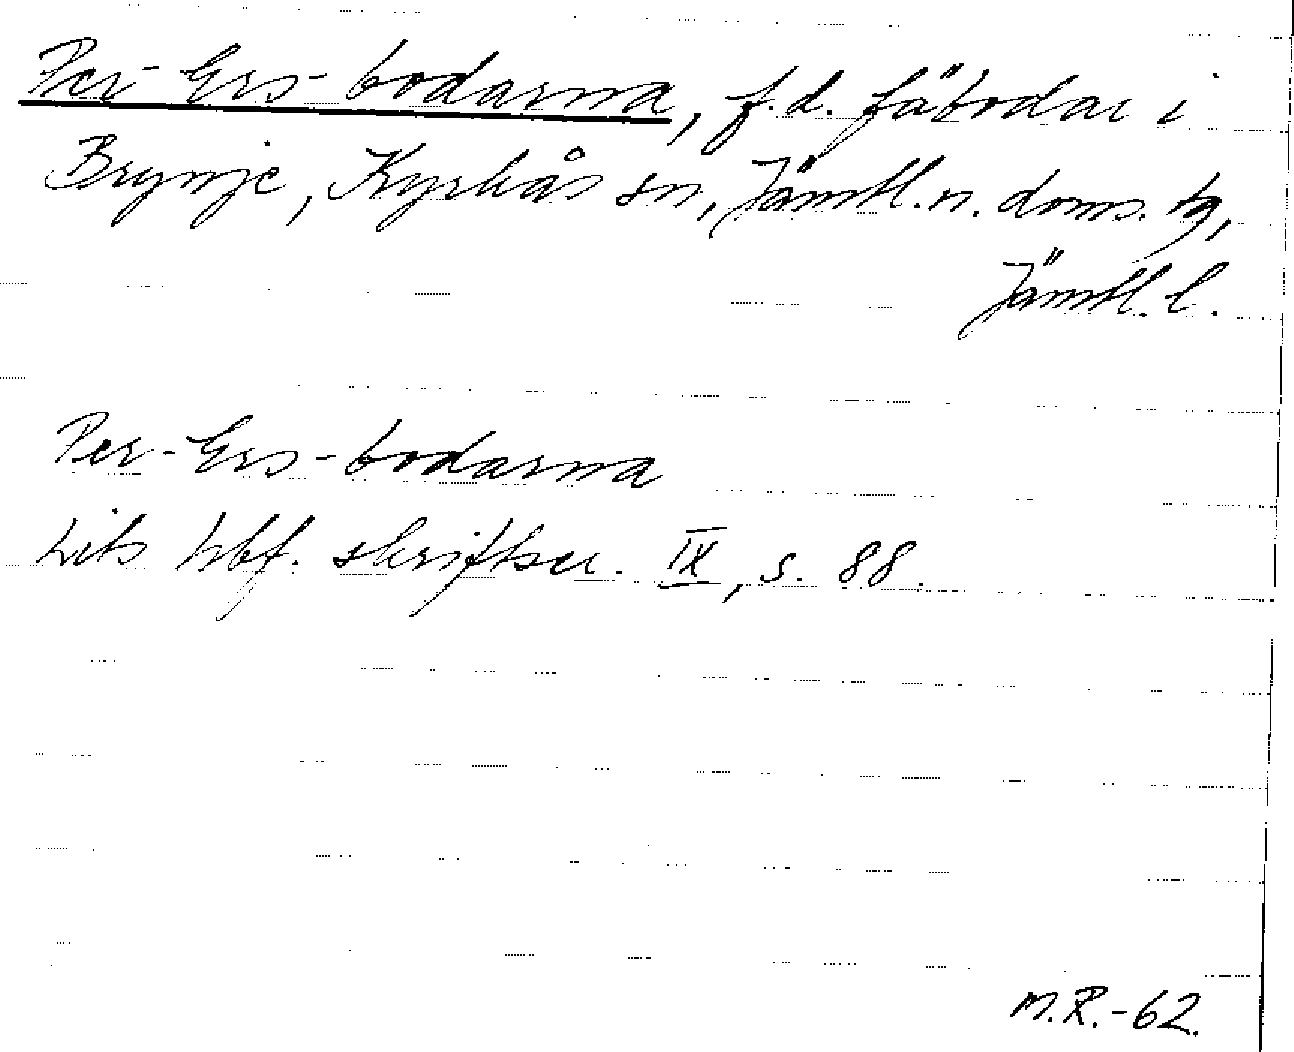 Per-Ers-bodarna, f.d. fäbodar i
Brynje, Kyrkås sn, Jämtl. n. doms. tg,
Jämtl. l.
Per-Ers-bodarna
Lits hbf. skriftser. IX, s. 88.
M.R.-62.